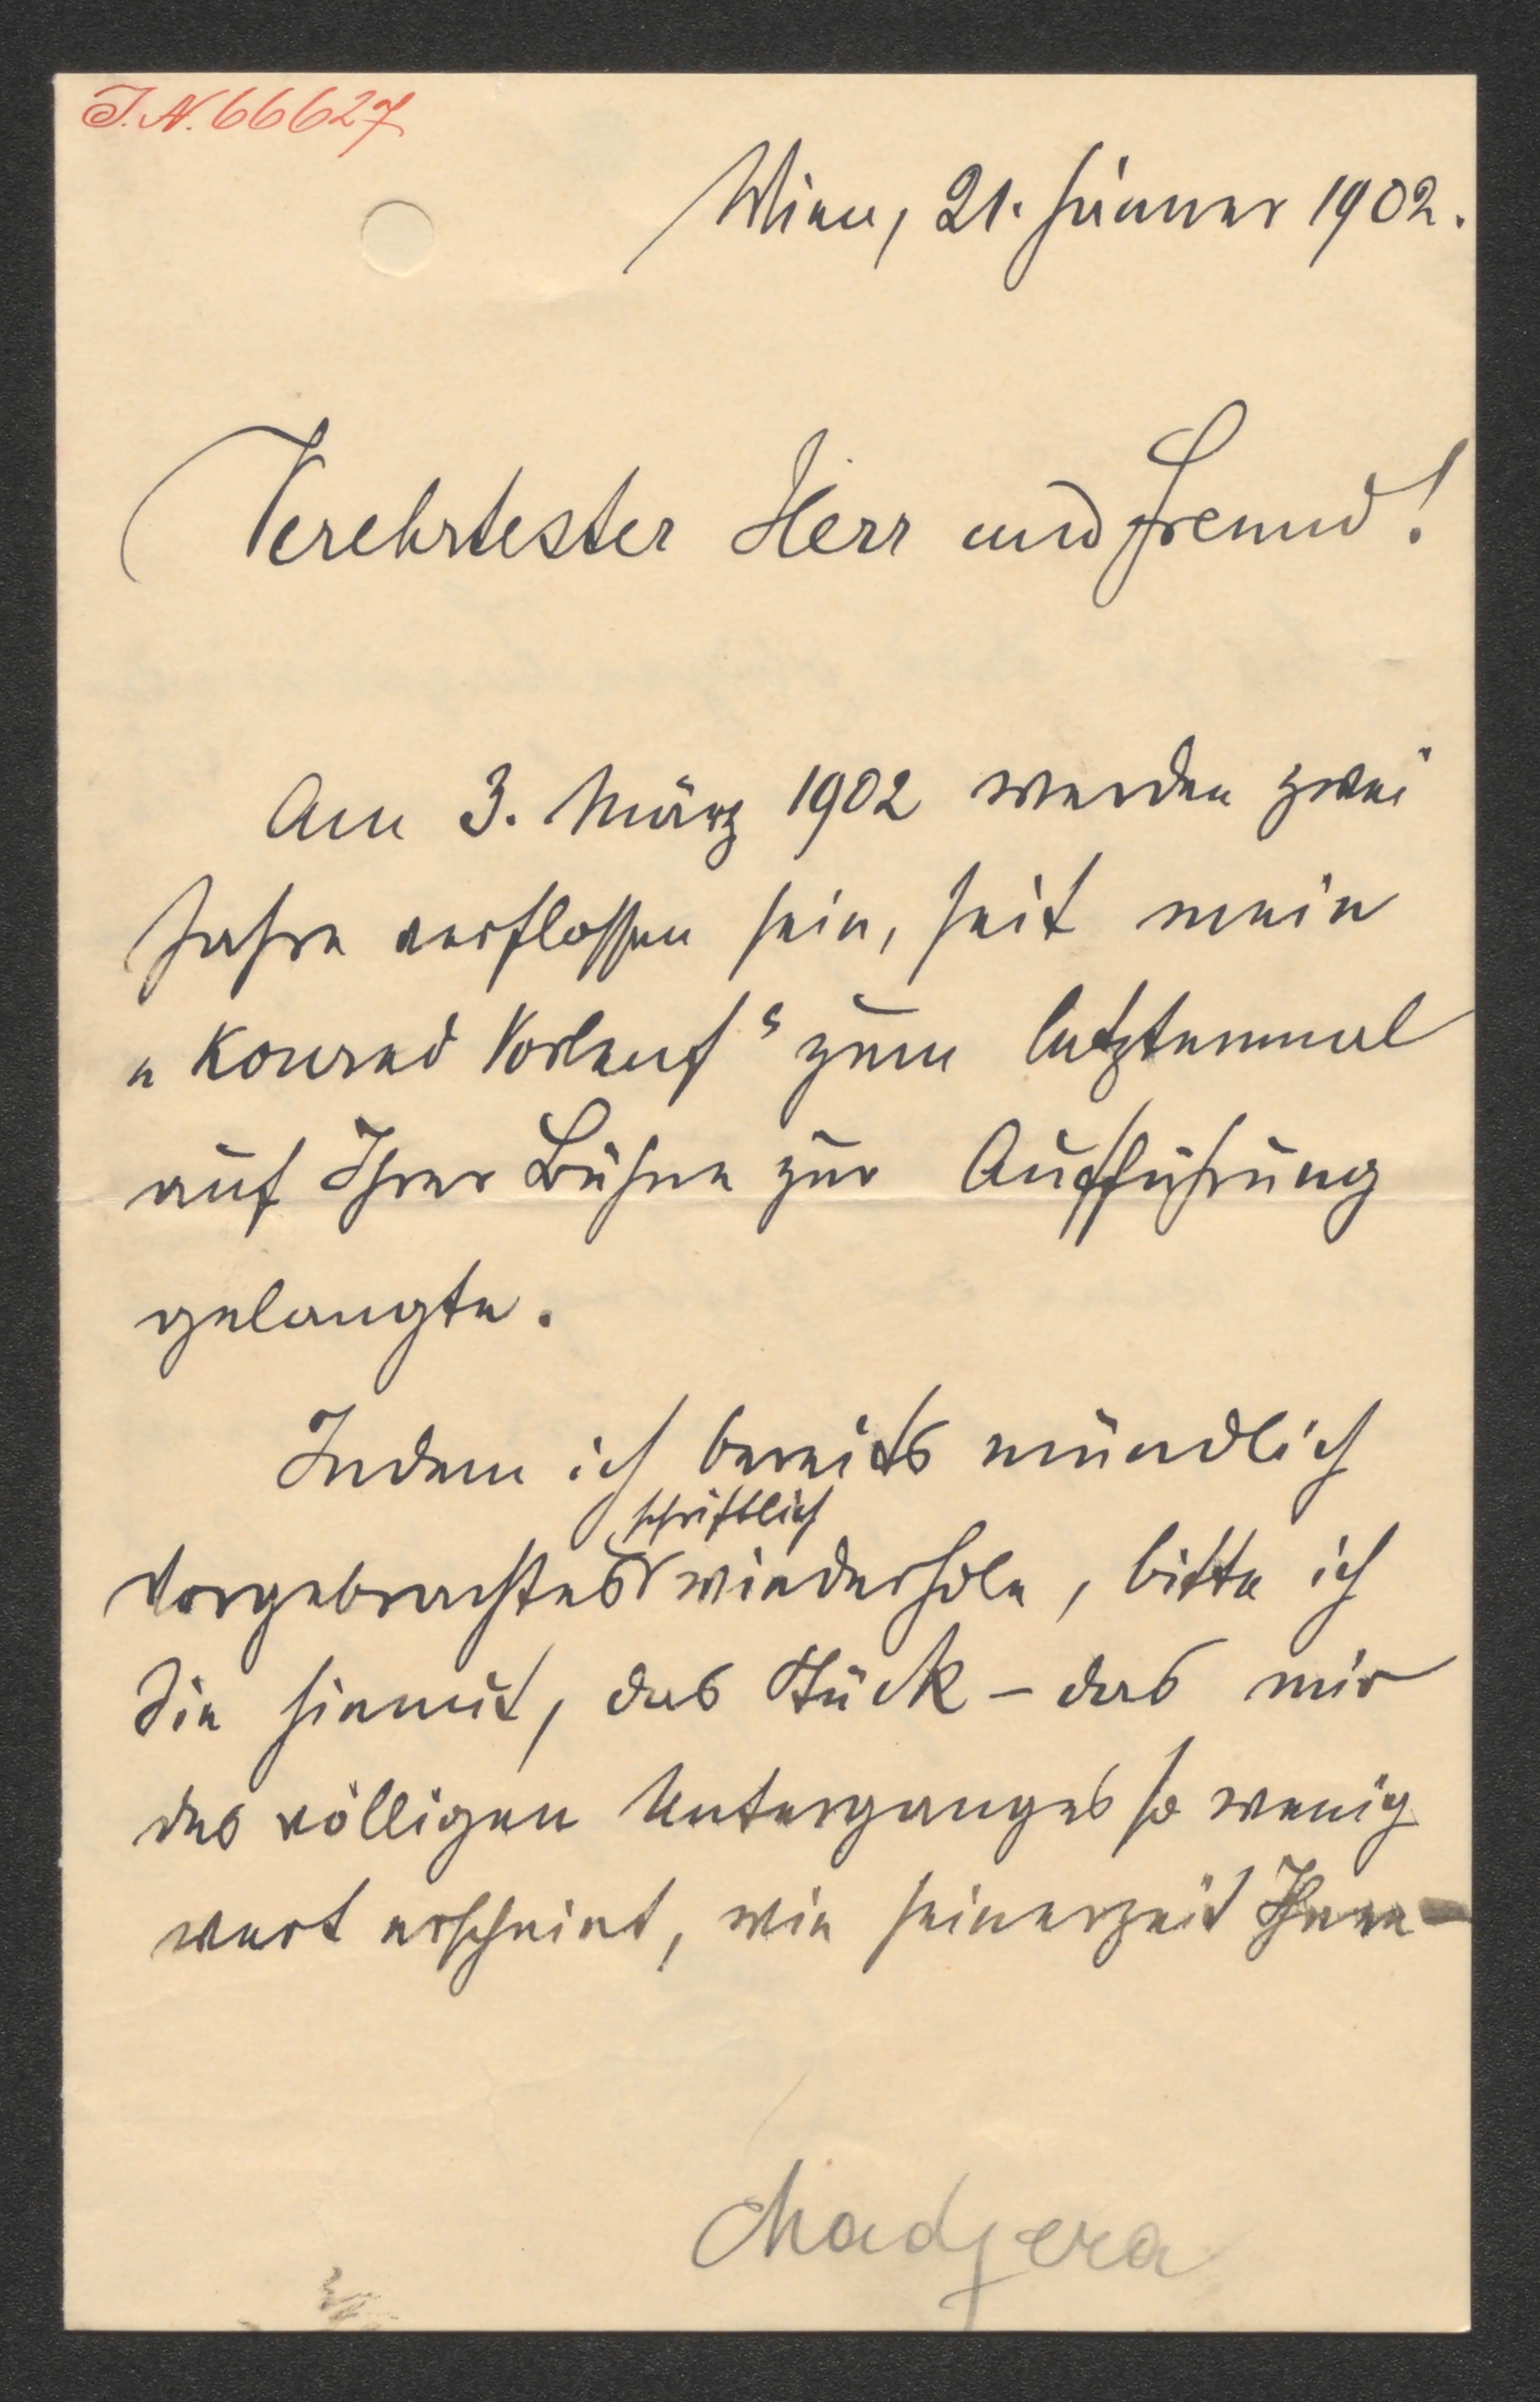 I.N. 66627
Wien, 21. Jänner 1902.
Verehrtester Herr und Freund!
Am 3. März 1902 werden zwei
Jahre verflossen sein, seit mein
„Konrad Vorlauf“ zum letztenmal
auf Ihrer Bühne zur Aufführung
gelangte.
Indem ich bereits mündlich
schriftlich
Vorgebrachtes wiederhole, bitte ich
Sie hiemit, das Stück – das mir
des völligen Unterganges so wenig
wert erscheint, wie seinerzeit Ihnen –
Madjera